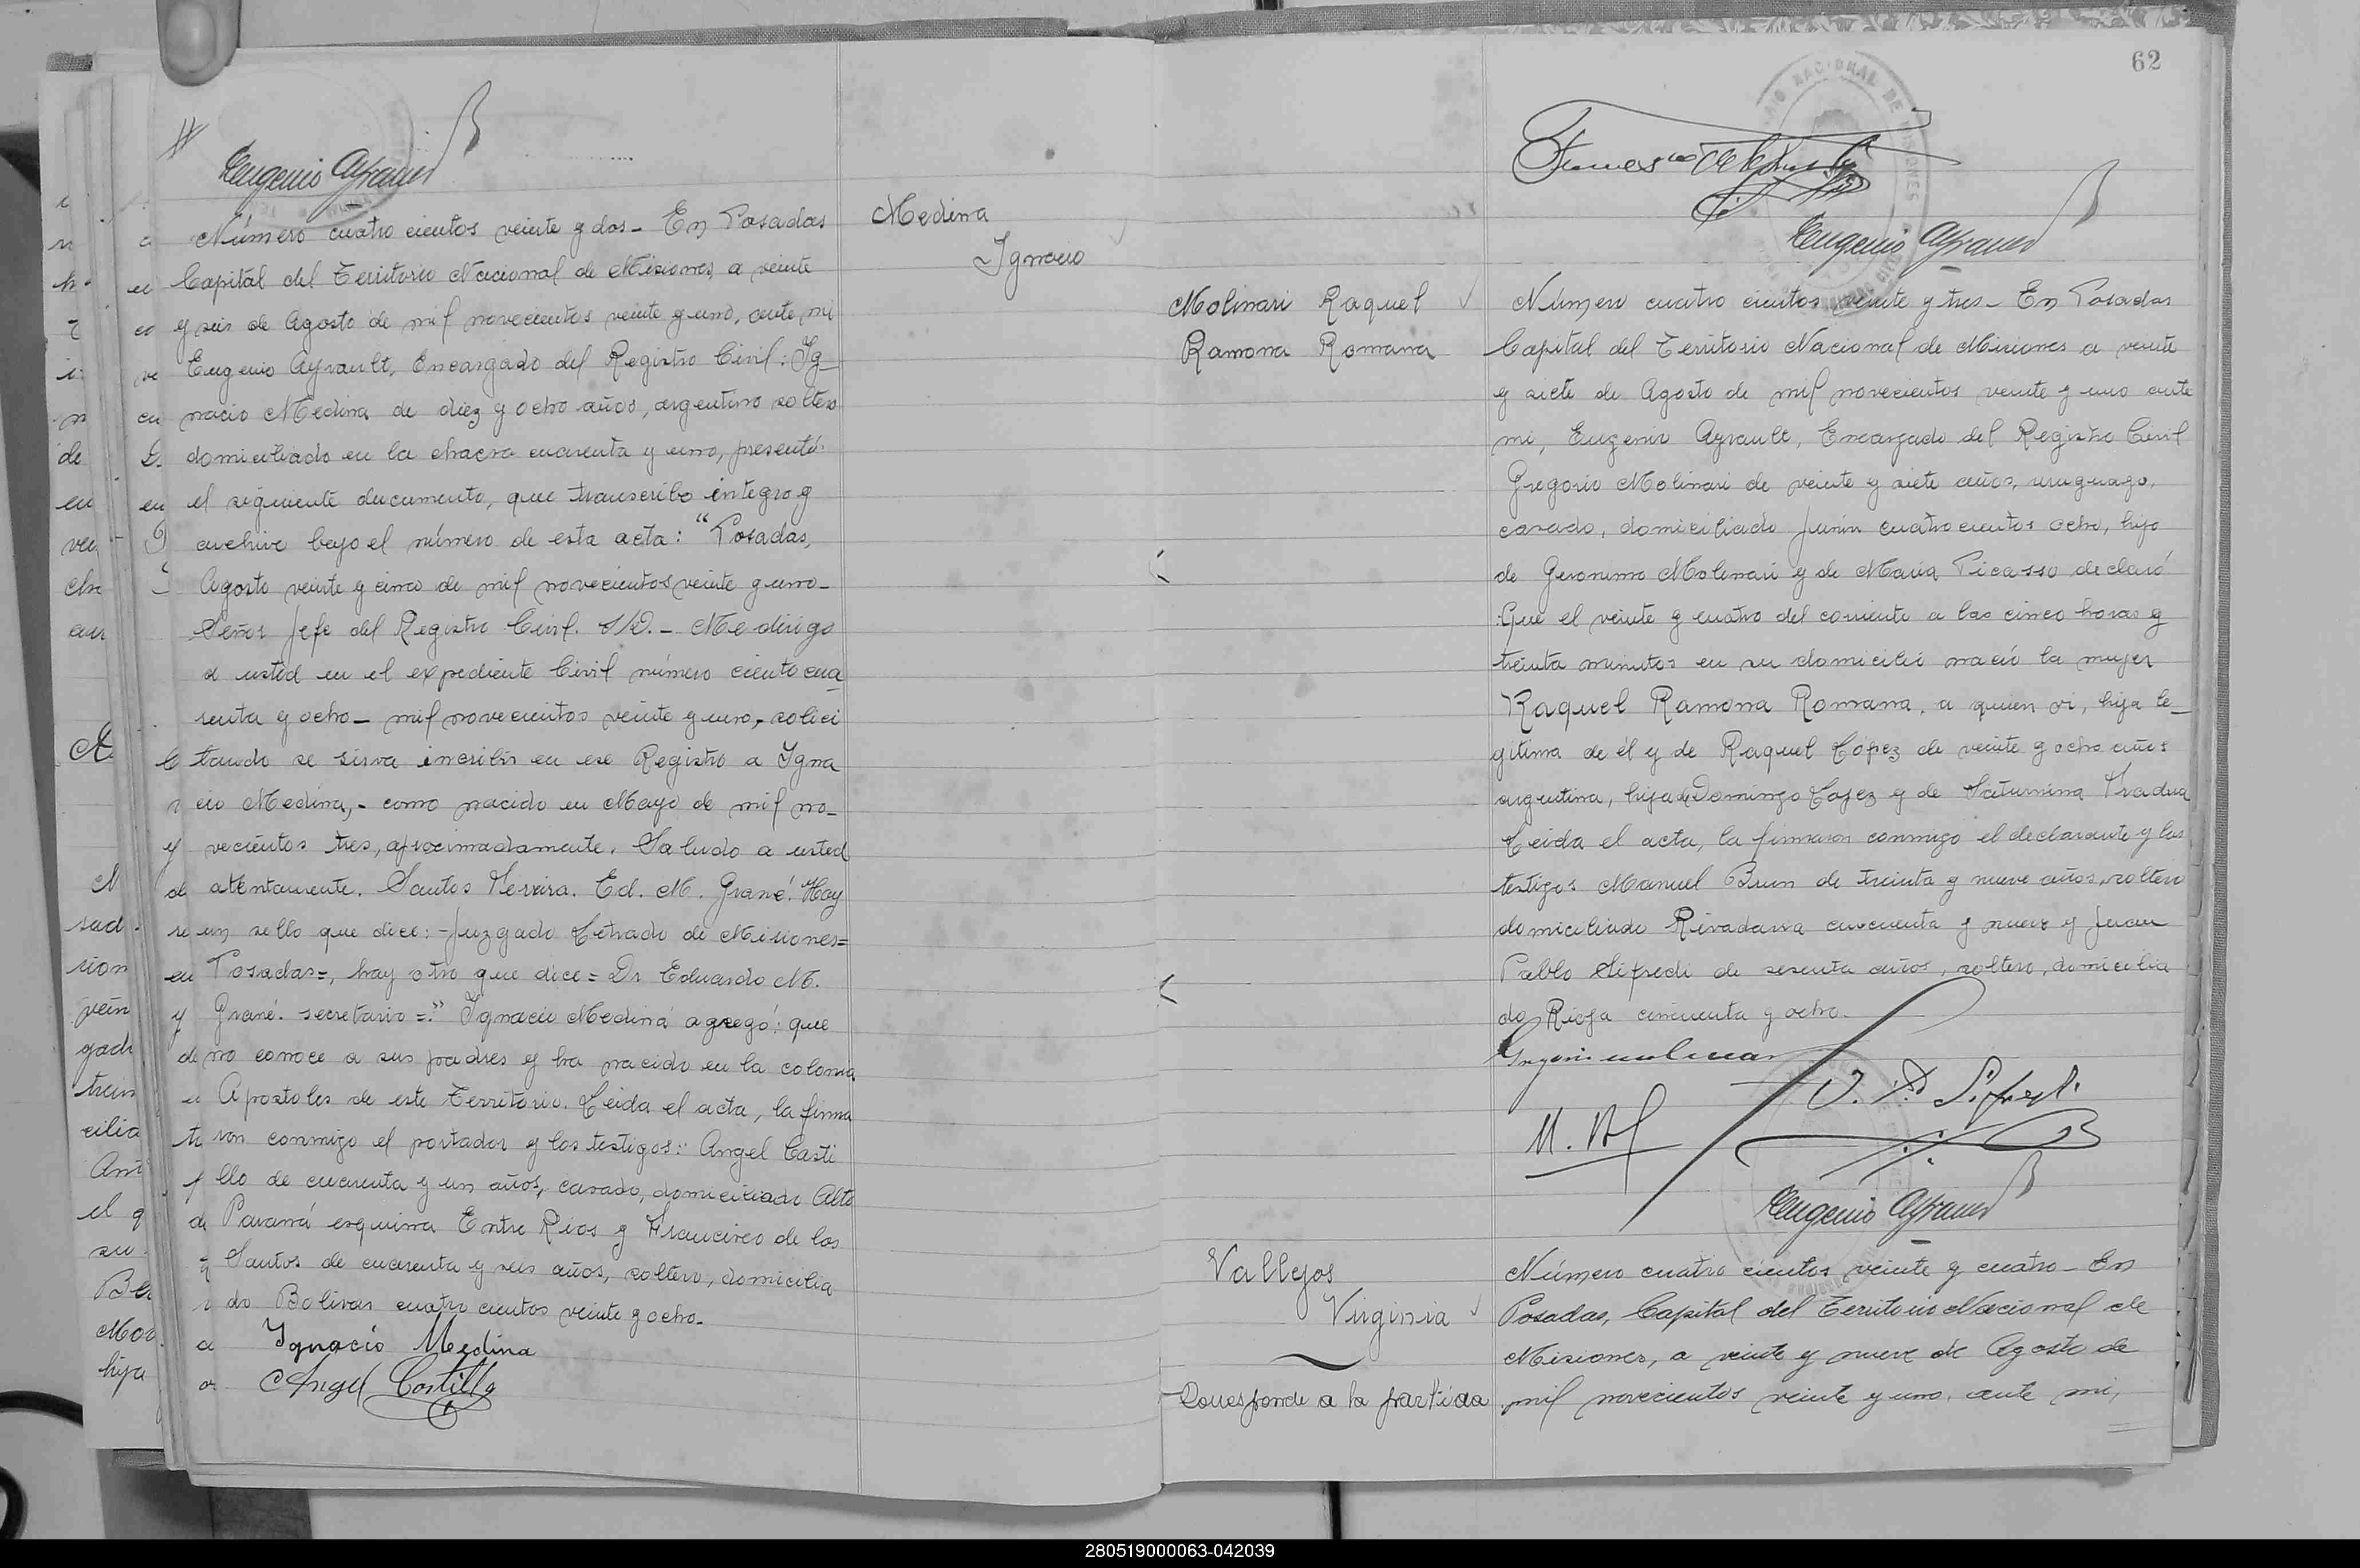 Eugenio Ayrault
Número cuatro cientos veinte y dos - En Posadas
Capital del Territorio Nacional de Misiones, a veinte
y seis de Agosto de mil novecientos veinte y uno, ante mi
Eugenio Ayrault, Encargado del Registro Civil: Ig-
nacio Medina de diez y ocho años, argentino soltero
domiciliado en la chacra cuarenta y uno, presentó:
el siguiente documento, que transcribo integro y
archivo bajo el número de esta acta: "Posadas,
Agosto veinte y cinco de mil novecientos veinte y uno -
Señor Jefe del Registro Civil. S/D. - Me dirigo
a usted en el expediente Civil número ciento cua-
renta y ocho - mil novecientos veinte y uno, - solici
tando se sirva incribir en ese Registro a Igna
cio Medina, - como nacido en Mayo de mil no-
vecientos tres, aproximadamente. Saludo a usted
atentamente. Santos Ferreira. Ed. M. Grané. Hay
un sello que dice: - Juzgado Letrado de Misiones =
Posadas =, hay otro que dice = Dr. Eduardo M.
Grané. secretario =." Ignacio Medina agregó: que
no conoce a sus padres y ha nacido en la colonia
Apostoles de este Territorio. Leida el acta, la firma
ron conmigo el portador y los testigos: Angel Casti
llo de cuarenta y un años, casado, domiciliado Alto
Paraná esquina Entre Rios y Francisco de los
Santos de cuarenta y seis años, soltero, domicilia
do Bolivar cuatro cientos veinte y ocho.
Ignacio Medina
Angel Castillo
Medina
Ignacio
62
Eugenio Ayrault
Molinari Raquel
Ramona Romana
Número cuatro cientos veinte y tres - En Posadas
Capital del Territorio Nacional de Misiones a veinte
y siete de Agosto de mil novecientos veinte y uno ante
mi, Eugenio Ayrault, Encargado del Registro Civil
Gregorio Molinari de veinte y siete años, uruguayo,
casado, domiciliado Junin cuatrocientos ocho, hijo
de Geronimo Molinari y de Maria Picasso declaró
Que el veinte y cuatro del corriente a las cinco horas y
treinta minutos en su domicilio nació la mujer
Raquel Ramona Romana, a quien vi, hija le-
gitima de él y de Raquel López de veinte y ocho años
argentina, hija de Domingo Lopez y de Saturnina
Leida el acta, la firmaron conmigo el declarante y los
testigos Manuel de treinta y nueve años, soltero
domiciliado Rivadavia y nueve y Juan
Pablo Sifredi de sesenta años, soltero, domicilia
do Rioja cincuenta y ocho.
Gregorio Molinari
J. P. Sifredi
Eugenio Ayrault
Vallejos
Virginia
Corresponde a la partida
Número cuatro cientos veinte y cuatro - En
Posadas, Capital del Territorio Nacional de
Misiones, a veinte y nueve de Agosto de
mil novecientos veinte y uno, ante mi,
280519000063-042039